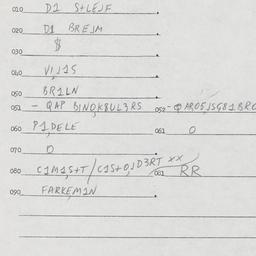 010 D1 S+LEJF
020 D1 BREJM
030 $
040 VIJ1S
050 BR1LN
051 - QAP BJNQK8UL3RS 052
060 P1,DELE 061 O
070 O
080 C1M1,S+T/C1S+O,JD3RT xx 081 RR
090 FARKEM1N